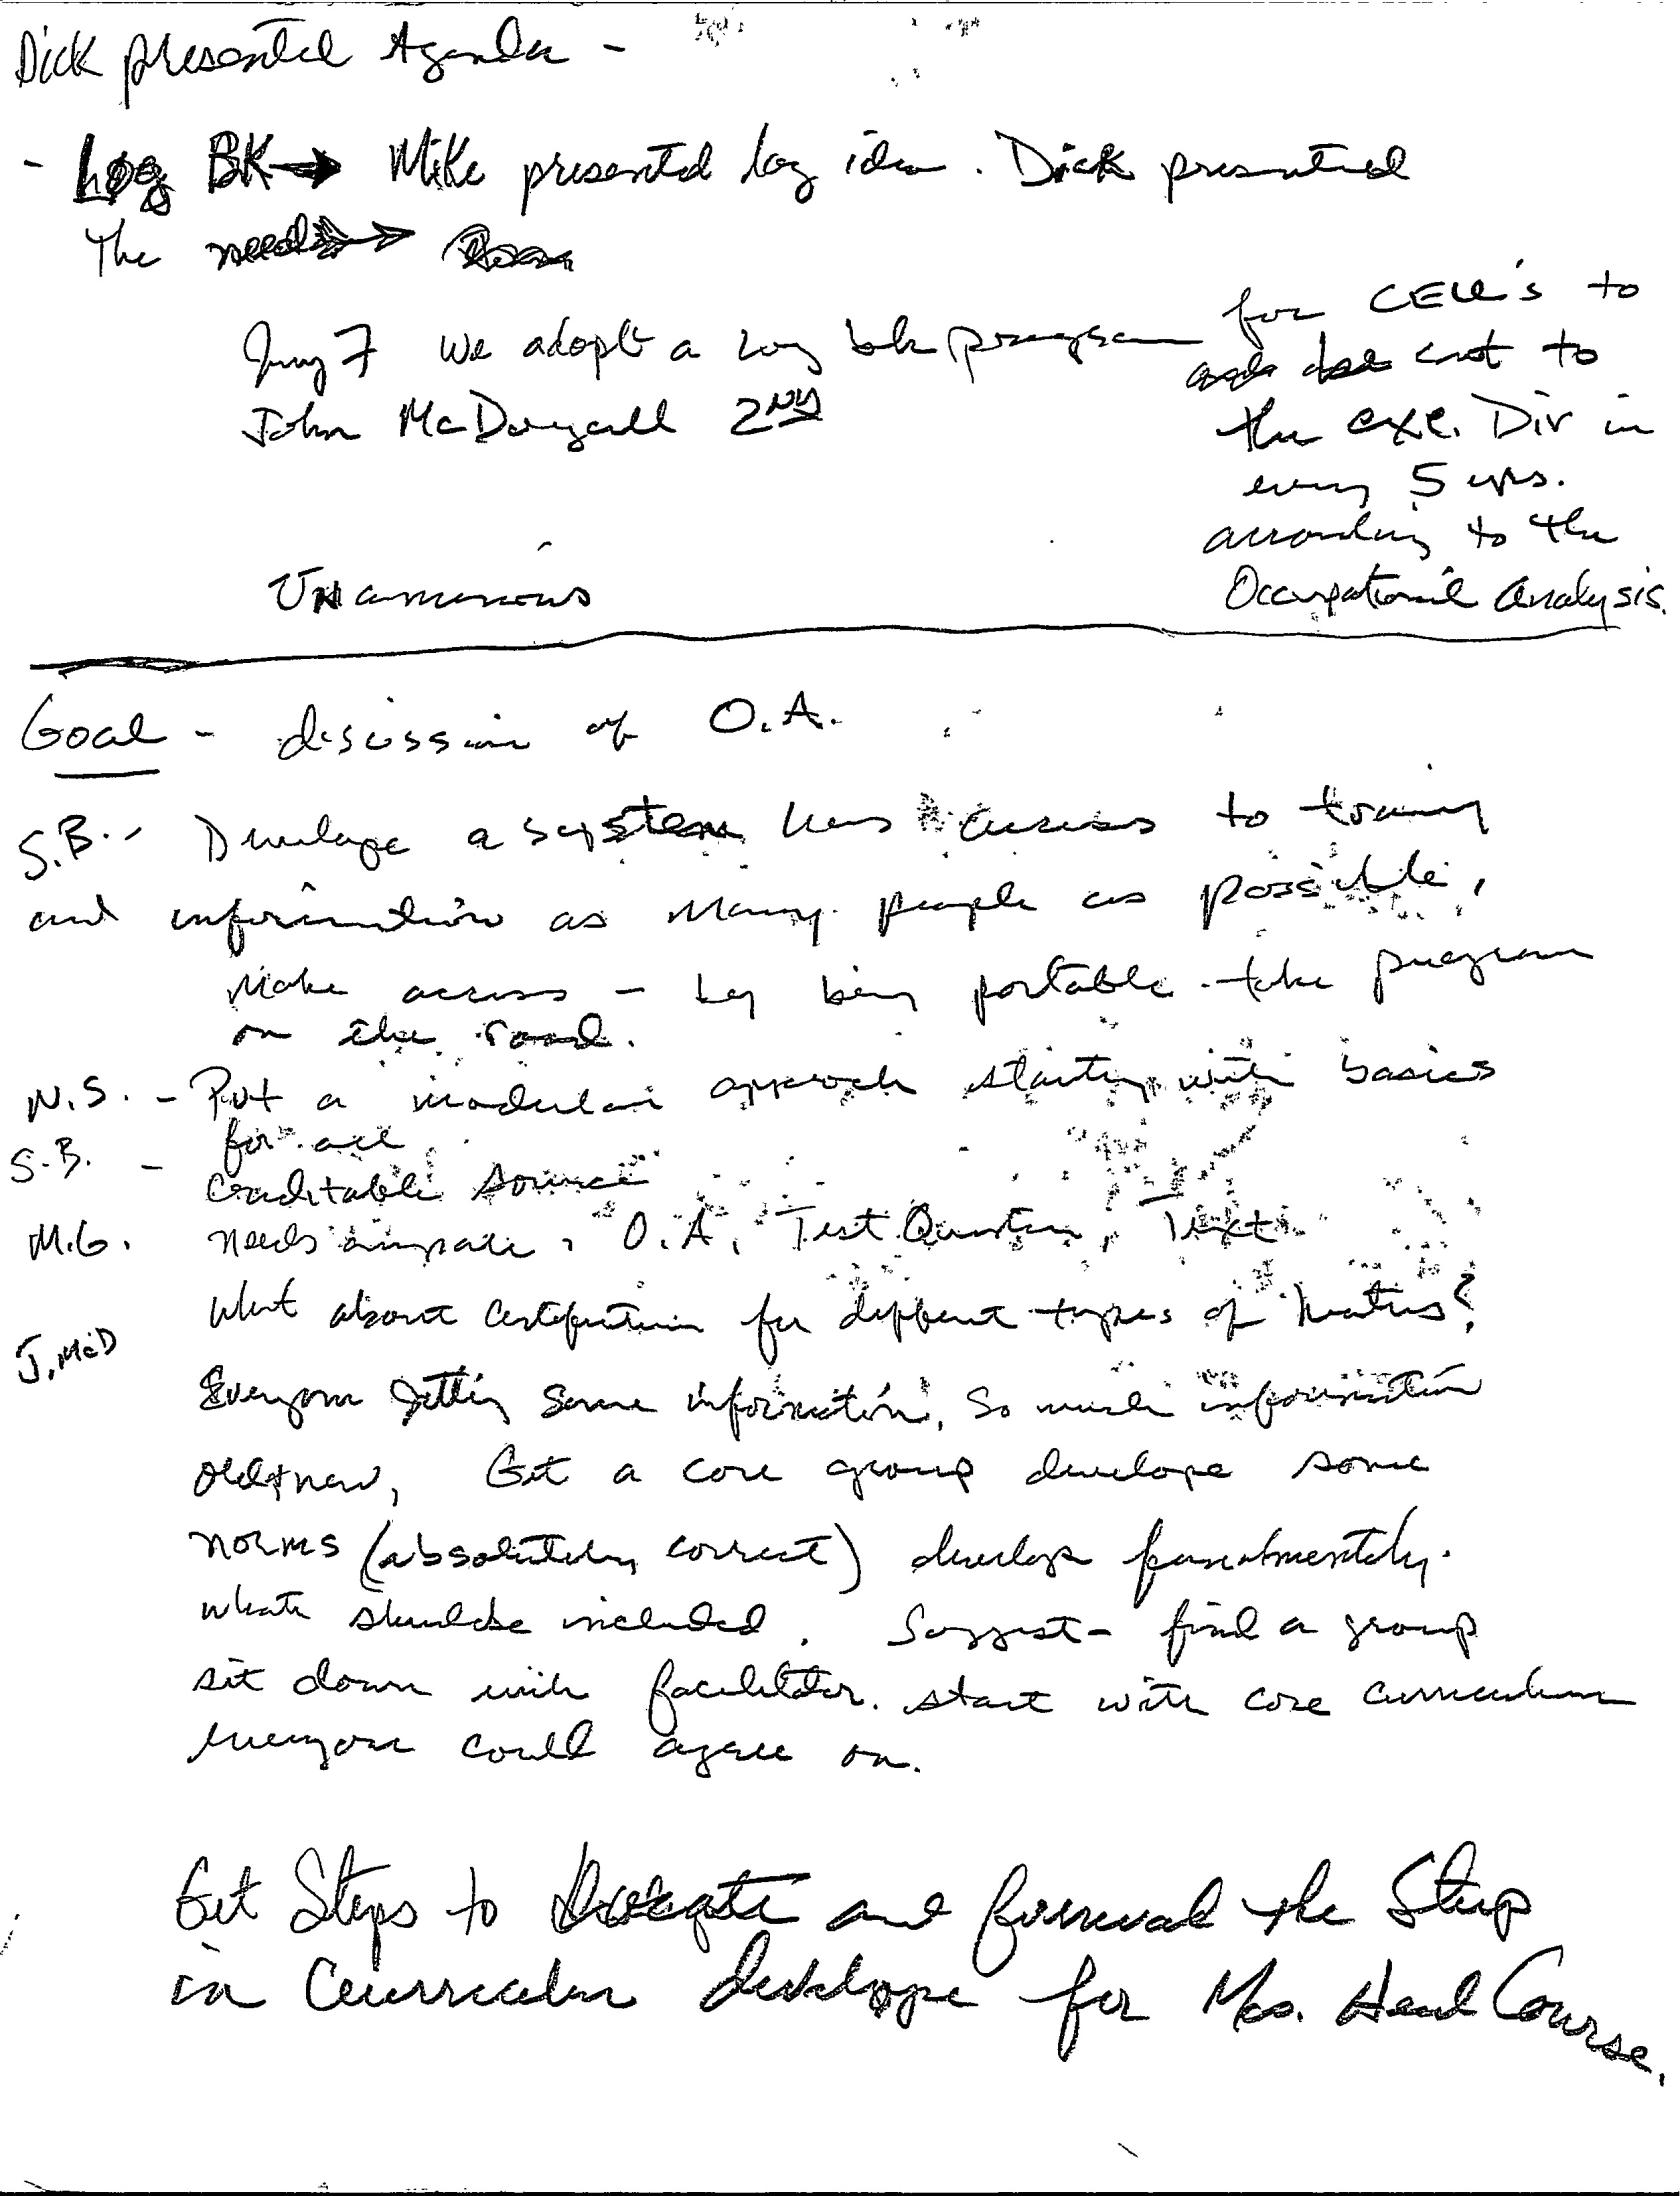 Dick presented Agenda -
- Log BK → Mike presented log idea. Dick presented
The need →
Jerry 7 we adopt a log bk program for CEU's to
cost to
John McDougall 2ND
the exe. Div in
every 5 yrs.
according to the
Unamimous
Occupational Analysis.
Goal - discission of O.A.
S.B. - Develope a system has access to training
and information as many people as possible,
make access - by being portable - take program
on the road.
N.S. - Put a modular approach starting with basics
for all
S.B. - Creditable source
M.G. needs O.A, Test Question, Text
What about certification for different types of heaters?
J. McD
Everyone getting same information, so much information
old & new, Get a core group develope some
norms (absolutely correct) develope
what should be included. Suggest - find a group
sit down with facilitator. start with core curriculum
everyone could agree on.
Get Steps to and forward the Step
in Curriculum develope for Mas. Heat Course.